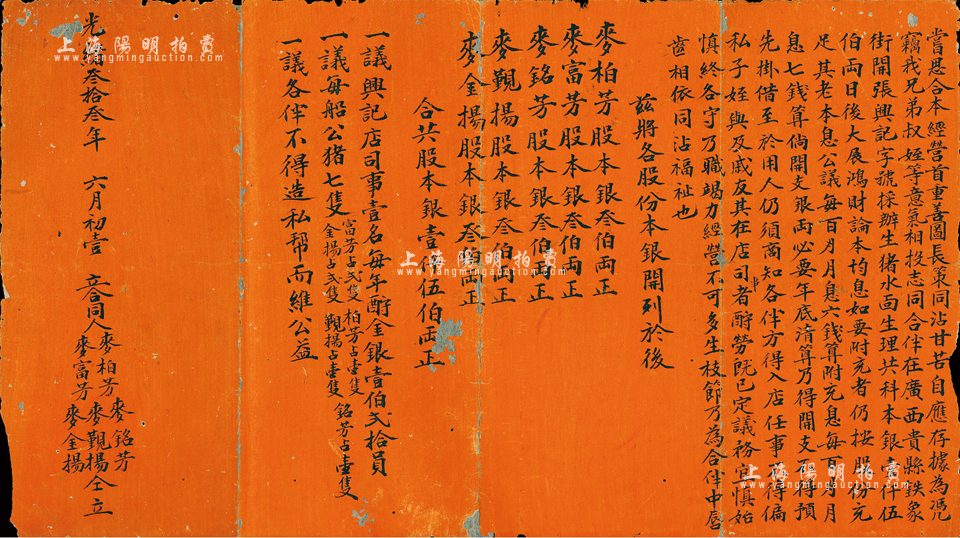 嘗思合本經營首重善圖長策同沾甘苦自應存據為憑凡
竊我兄弟叔姪等意氣相投志同合伴在廣西貴縣鉄象
街開張興記字號採辦生猪水面生理共科本銀壹仟伍
伯両日後大展鴻財論本均息如要附充者仍按股份充
足其老本息公議每百月月息六銭算附充息每百月月
息七銭算倘開支銀両必要年底清算乃得開支不得預
先掛借至於用人仍須商知各伴方得入店任事不得偏
私子姪與及戚友其在店司者酧勞既已定議務宜慎始
慎終各守乃職竭力經營不可多生枝節乃為合伴中唇
齒相依同沾福祉也
茲將各股份本銀開列於後
麥柏芳股本銀叁伯両正
麥富芳股本銀叁伯両正
麥銘芳股本銀叁伯両正
麥覲揚股本銀叁伯両正
麥金揚股本銀叁伯両正
合共股本銀壹仟伍伯両正
一議興記店司事壹名每年酧金銀壹伯弍拾員
一議每船公猪七隻 富芳占弍隻 柏芳占壹隻 銘芳占壹隻
金揚占弍隻 覲揚占壹隻
一議各伴不得造私帮而維公益
光緒叁拾叁年 六月初壹 立合同人 麥柏芳 麥銘芳
麥富芳 麥覲揚 仝立
麥金揚
上海陽明拍賣
www.yangmingauction.com
上海陽明拍賣
www.yangmingauction.com
上海陽明拍賣
www.yangmingauction.com